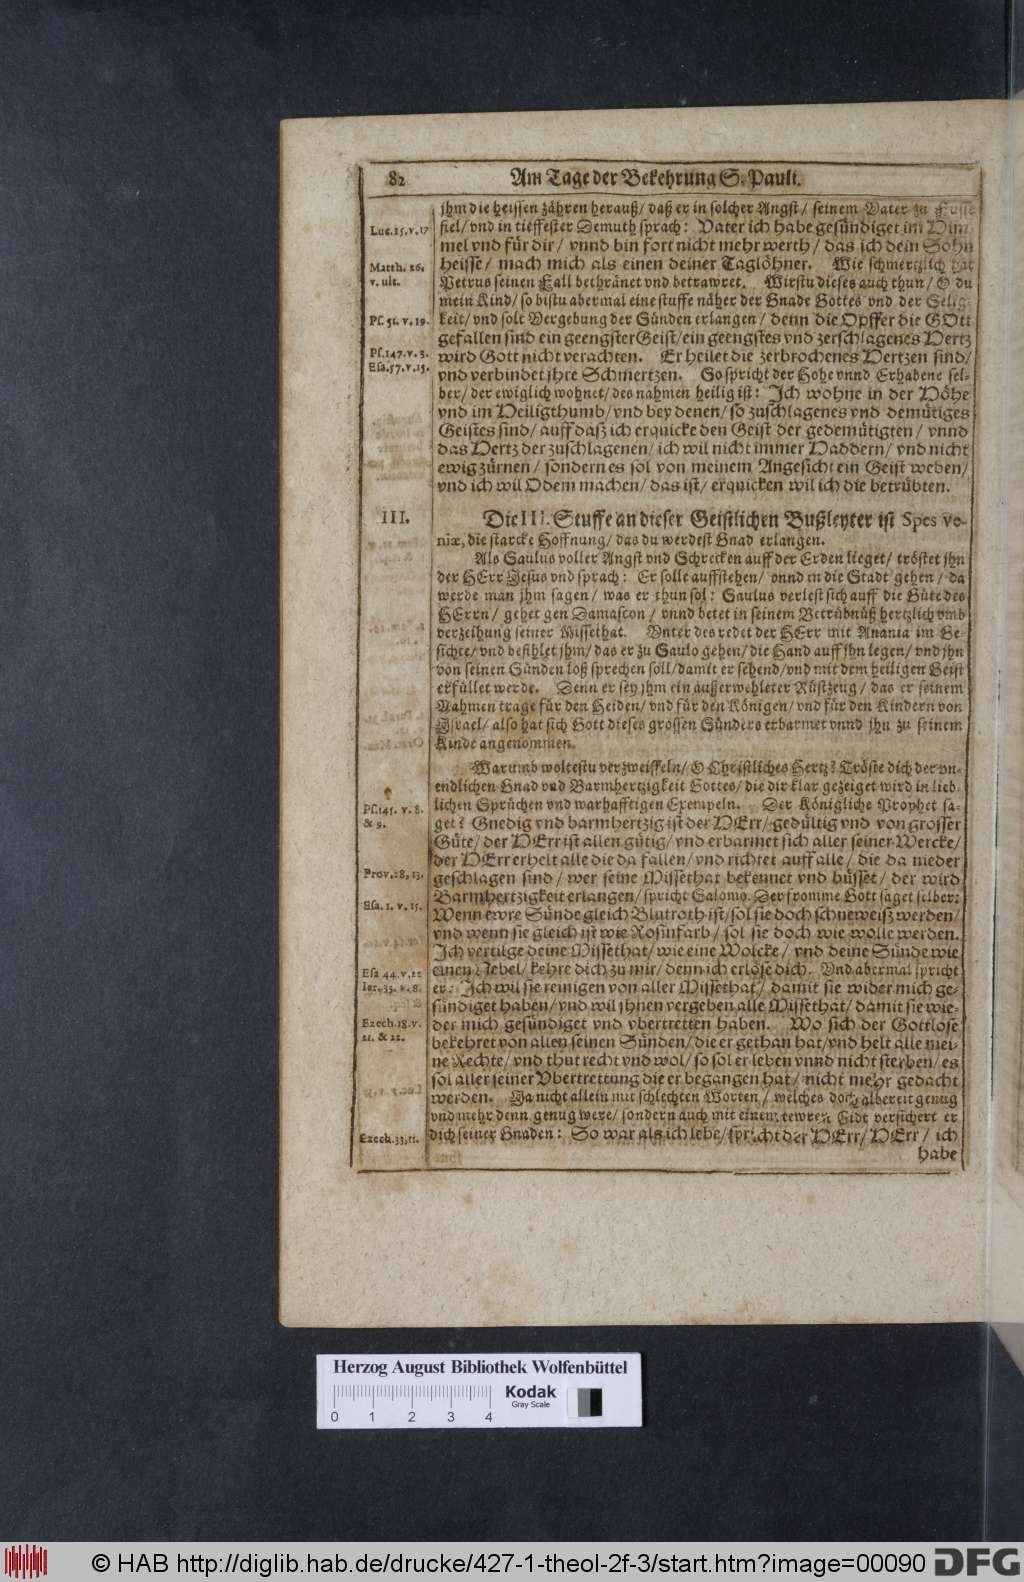 82
Am Tage der Bekehrung S. Pauli.
jhm die heissen zähren herauß/ daß er in solcher Angst/ seinem Vater zu Fusse
Luc. 15. v. 17
fiel/ vnd in tieffester Demuth sprach: Vater ich habe gesündiget im Him-
mel vnd für dir/ vnnd bin fort nicht mehr werth/ das ich dein Sohn
Matth. 26. v. ult.
heisse/ mach mich als einen deiner Taglöhner. Wie schmertzlich hat
Petrus seinen Fall bethränet vnd betrawret. Wirstu dieses auch thun/ O du
mein Kind/ so bistu abermal eine stuffe näher der Gnade Gottes vnd der Selig-
Ps. 51. v. 19.
keit/ vnd solt Vergebung der Sünden erlangen/ denn die Opffer die GOtt
gefallen sind ein geengster Geist/ ein geengstes vnd zerschlagenes Hertz
Ps. 147. v. 3.
wird Gott nicht verachten. Er heilet die zerbrochenes Hertzen sind/
Esa. 57. v. 15.
vnd verbindet jhre Schmertzen. So spricht der Hohe vnnd Erhabene sel-
ber/ der ewiglich wohnet/ des nahmen heilig ist: Ich wohne in der Höhe
vnd im Heiligthumb/ vnd bey denen/ so zuschlagenes vnd demütiges
Geistes sind/ auff daß ich erquicke den Geist der gedemütigten/ vnnd
das Hertz der zuschlagenen/ ich wil nicht immer Haddern/ vnd nicht
ewig zürnen/ sondern es sol von meinem Angesicht ein Geist weben/
vnd ich wil Odem machen/ das ist/ erquicken wil ich die betrübten.
III.
Die III. Stuffe an dieser Geistlichen Bußleyter ist Spes ve-
niæ, die starcke Hoffnung/ das du werdest Gnad erlangen.
Als Saulus voller Angst vnd Schrecken auff der Erden lieget/ tröstet jhn
der HErr Jesus vnd sprach: Er solle auffstehen/ vnnd in die Stadt gehen/ da
werde man jhm sagen/ was er thun sol: Saulus verlest sich auff die Güte des
HErrn/ gehet gen Damascon/ vnnd betet in seinem Betrübnüß hertzlich vmb
verzeihung seiner Missethat. Vnter des redet der HErr mit Anania im Ge-
sichte/ vnd befihlet jhm/ das er zu Saulo gehen/ die Hand auff jhn legen/ vnd jhn
von seinen Sünden loß sprechen soll/ damit er sehend/ vnd mit dem heiligen Geist
erfüllet werde. Denn er sey jhm ein außerwehleter Rüstzeug/ das er seinem
Nahmen trage für den Heiden/ vnd für den Königen/ vnd für den Kindern von
Israel/ also hat sich Gott dieses grossen Sünders erbarmet vnnd jhn zu seinem
Kinde angenommen.
Warumb woltestu verzweiffeln/ O Christliches Hertz? Tröste dich der vn-
endlichen Gnad vnd Barmhertzigkeit Gottes/ die dir klar gezeiget wird in lieb-
Ps. 145. v. 8. & 9.
lichen Sprüchen vnd warhafftigen Exempeln. Der Königliche Prophet sa-
get? Gnedig vnd barmhertzig ist der HErr/ gedültig vnd von grosser
Güte/ der HErr ist allen gütig/ vnd erbarmet sich aller seiner Wercke/
der HErr erhelt alle die da fallen/ vnd richtet auff alle/ die da nieder
Prov. 28, 13.
geschlagen sind/ wer seine Missethat bekennet vnd büsset/ der wird
Barmhertzigkeit erlangen/ spricht Salomo. Der fromme Gott saget selber:
Esa. 1. v. 15.
Wenn ewre Sünde gleich Blutroth ist/ sol sie doch schneweiß werden/
vnd wenn sie gleich ist wie Rosinfarb/ sol sie doch wie wolle werden.
Ich vertilge deine Missethat/ wie eine Wolcke/ vnd deine Sünde wie
Esa 44. v. 22
einen Nebel/ kehre dich zu mir/ denn ich erlöse dich. Vnd abermal spricht
Ier. 33. v. 8.
er: Ich wil sie reinigen von aller Missethat/ damit sie wider mich ge-
sündiget haben/ vnd wil jhnen vergeben alle Missethat/ damit sie wie-
Ezech. 18. v. 21. & 22.
der mich gesündiget vnd vbertretten haben. Wo sich der Gottlose
bekehret von allen seinen Sünden/ die er gethan hat/ vnd helt alle mei-
ne Rechte/ vnd thut recht vnd wol/ so sol er leben vnnd nicht sterben/ es
sol aller seiner Vbertrettung die er begangen hat/ nicht mehr gedacht
werden. Ja nicht allein mit schlechten Worten/ welches doch albereit genug
vnd mehr denn genug were/ sondern auch mit einem tewren Eidt versichert er
Ezech. 33, 11.
dich seiner Gnaden: So war als ich lebe/ spricht der HErr/ HErr/ ich
habe
Herzog August Bibliothek Wolfenbüttel
Kodak
Gray Scale
0 1 2 3 4
© HAB http://diglib.hab.de/drucke/427-1-theol-2f-3/start.htm?image=00090
DFG